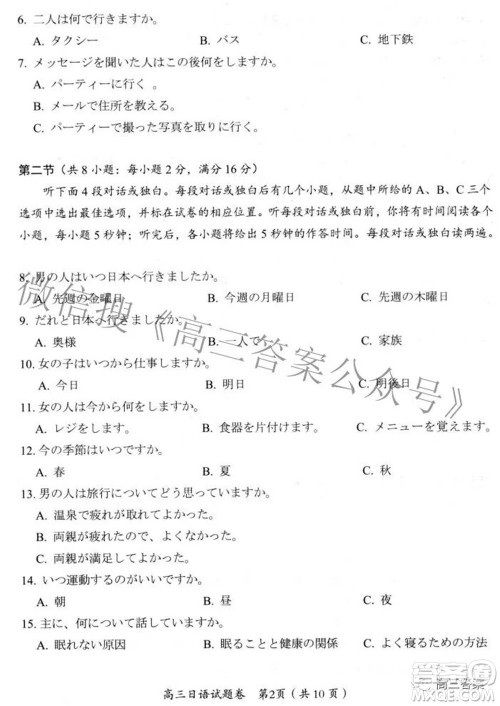 6. 二人は何で行きますか。
A. タクシー B. バス C. 地下鉄
7. メッセージを聞いた人はこの後何をしますか。
A. パーティーに行く 。
B. メールで住所を教える。
C. パーティーで撮った写真を取りに行く。
第二节（共 8 小题：每小题 2 分，满分 16 分）
听下面 4 段对话或独白。每段对话或独白后有几个小题，从题中所给的 A、B、C 三个
选项中选出最佳选项，并标在试卷的相应位置。听每段对话或独白前，你将有时间阅读各个
小题，每小题 5 秒钟；听完后，各小题将给出 5 秒钟的作答时间。每段对话或独白读两遍。
8. 男の人はいつ日本へ行きましたか。
A. 先週の金曜日 B. 今週の月曜日 C. 先週の木曜日
9. だれと日本へ行きましたか。
A. 奥様 B. 一人で C. 家族
10. 女の子はいつから仕事しますか。
A. 今日 B. 明日 C. 明後日
11. 女の人は今から何をしますか。
A. レジをします。 B. 食器を片付けます。 C. メニューを覚えます。
12. 今の季節はいつですか。
A. 春 B. 夏 C. 秋
13. 男の人は旅行についてどう思っていますか。
A. 温泉で疲れが取れてよかった。
B. 両親の疲れが取れてよかった。
C. 両親が満足してよかった。
14. いつ運動するのがいいですか。
A. 朝 B. 昼 C. 夜
15. 主に、何について話していますか。
A. 眠れない原因 B. 眠ることと健康の関係 C. よく寝るための方法
高三日语试题卷 第2页（共 10 页）
微信搜《高三答案公众号》
高三答案